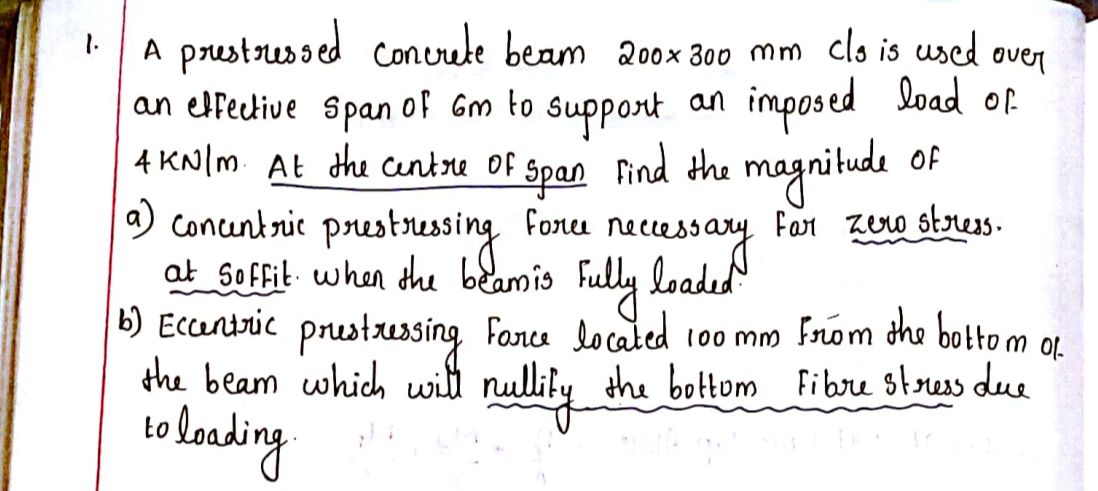 1. A prestressed concrete beam 200x300 mm c/s is used over
an effective span of 6m to support an imposed load of
4 KN/m. At the centre of span find the magnitude of
a) concentric prestressing force necessary for zero stress.
at soffit. when the beam is fully loaded.
b) Eccentric prestressing force located 100 mm from the bottom of
the beam which will nullify the bottom fibre stress due
to loading.